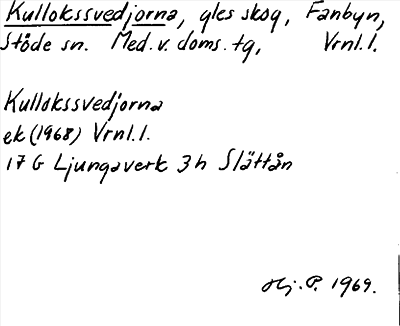 Kullokssvedjorna, gles skog, Fanbyn,
Stöde sn. Med. v. doms. tg, Vrnl. l.
Kullokssvedjorna
ek (1968) Vrnl. l.
17 G Ljungaverk 3h Slättån
Hj. P. 1969.